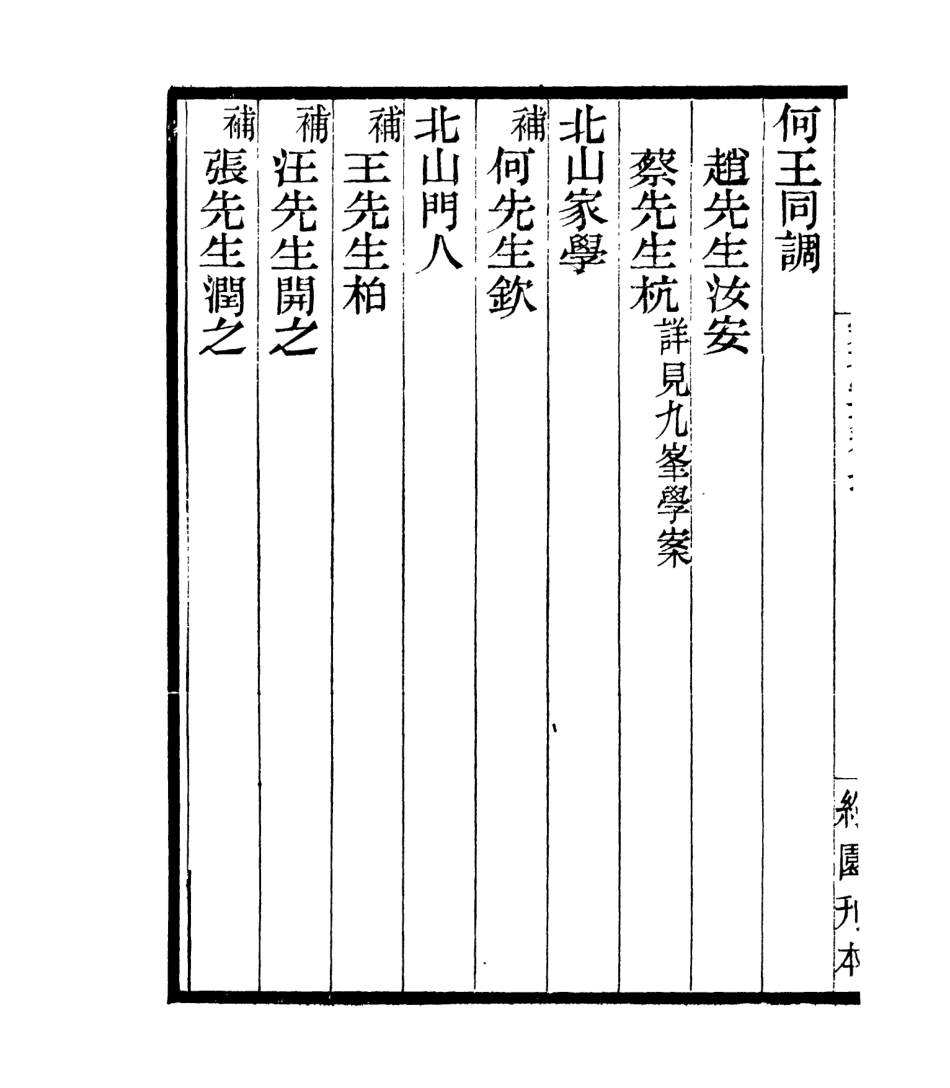 何王同調
趙先生汝安
蔡先生杭詳見九峯學案
北山家學
補何先生欽
北山門人
補王先生柏
補汪先生開之
補張先生潤之
園刊本